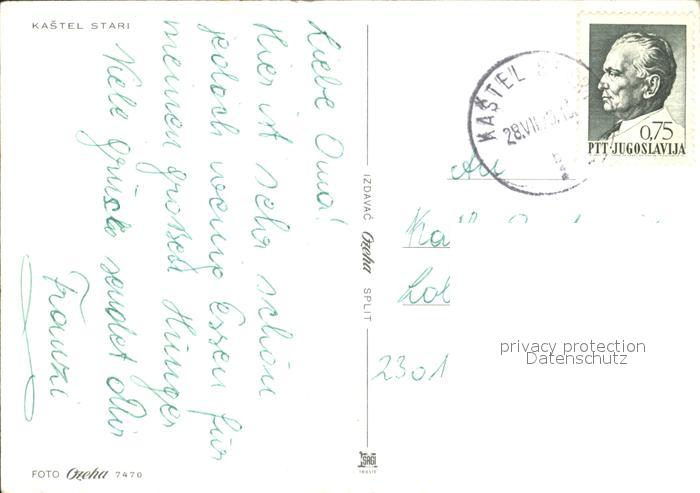 KAŠTEL STARI
Liebe Oma!
Hier ist sehr schön
jedoch wenig Essen für
meinen grossen Hunger
Viele Grüsse sendet Dir
Franzi
FOTO Ozeha 7470
IZDAVAČ Ozeha SPLIT
KAŠTEL
28.VII
0,75
PTT·JUGOSLAVIJA
An
Ka
Lol
2301
privacy protection
Datenschutz